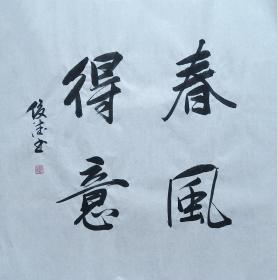 春風
得意
俊德书